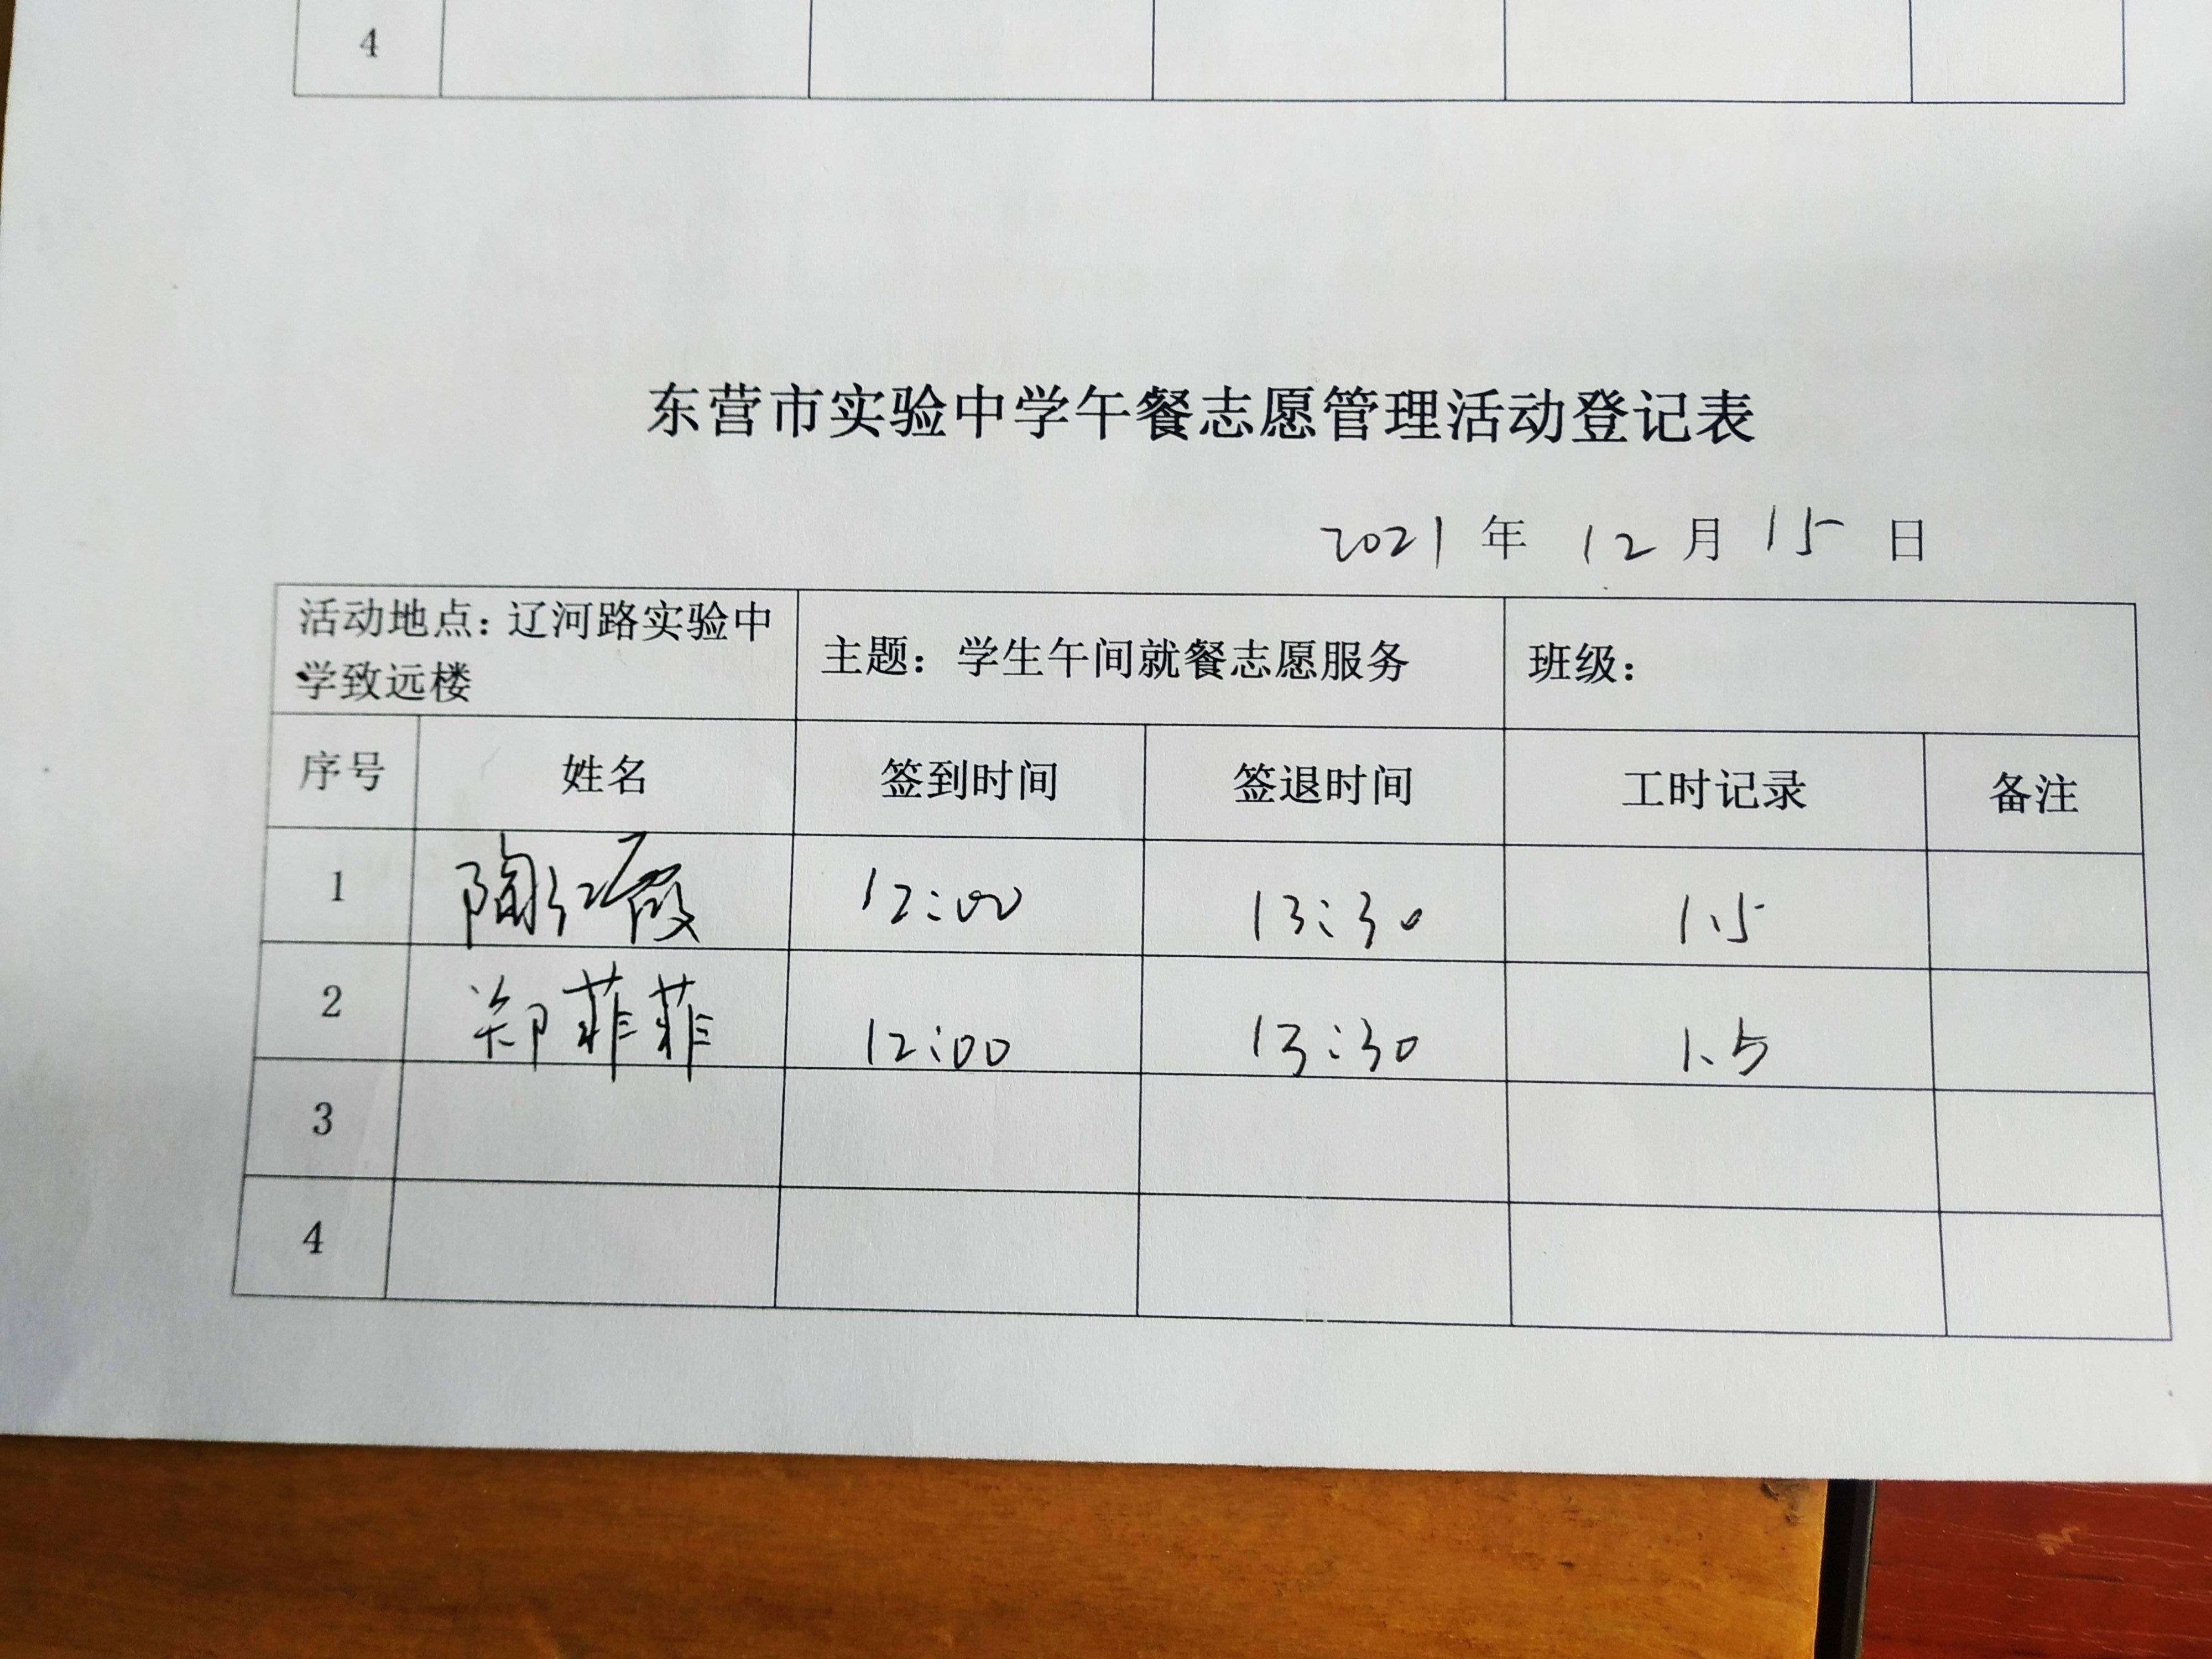 4
东营市实验中学午餐志愿管理活动登记表
2021 年 12 月 15 日
活动地点：辽河路实验中
学致远楼
主题：学生午间就餐志愿服务
班级：
序号 姓名 签到时间 签退时间 工时记录 备注
1 陶红霞 12:00 13:30 1.5
2 郑菲菲 12:00 13:30 1.5
3
4